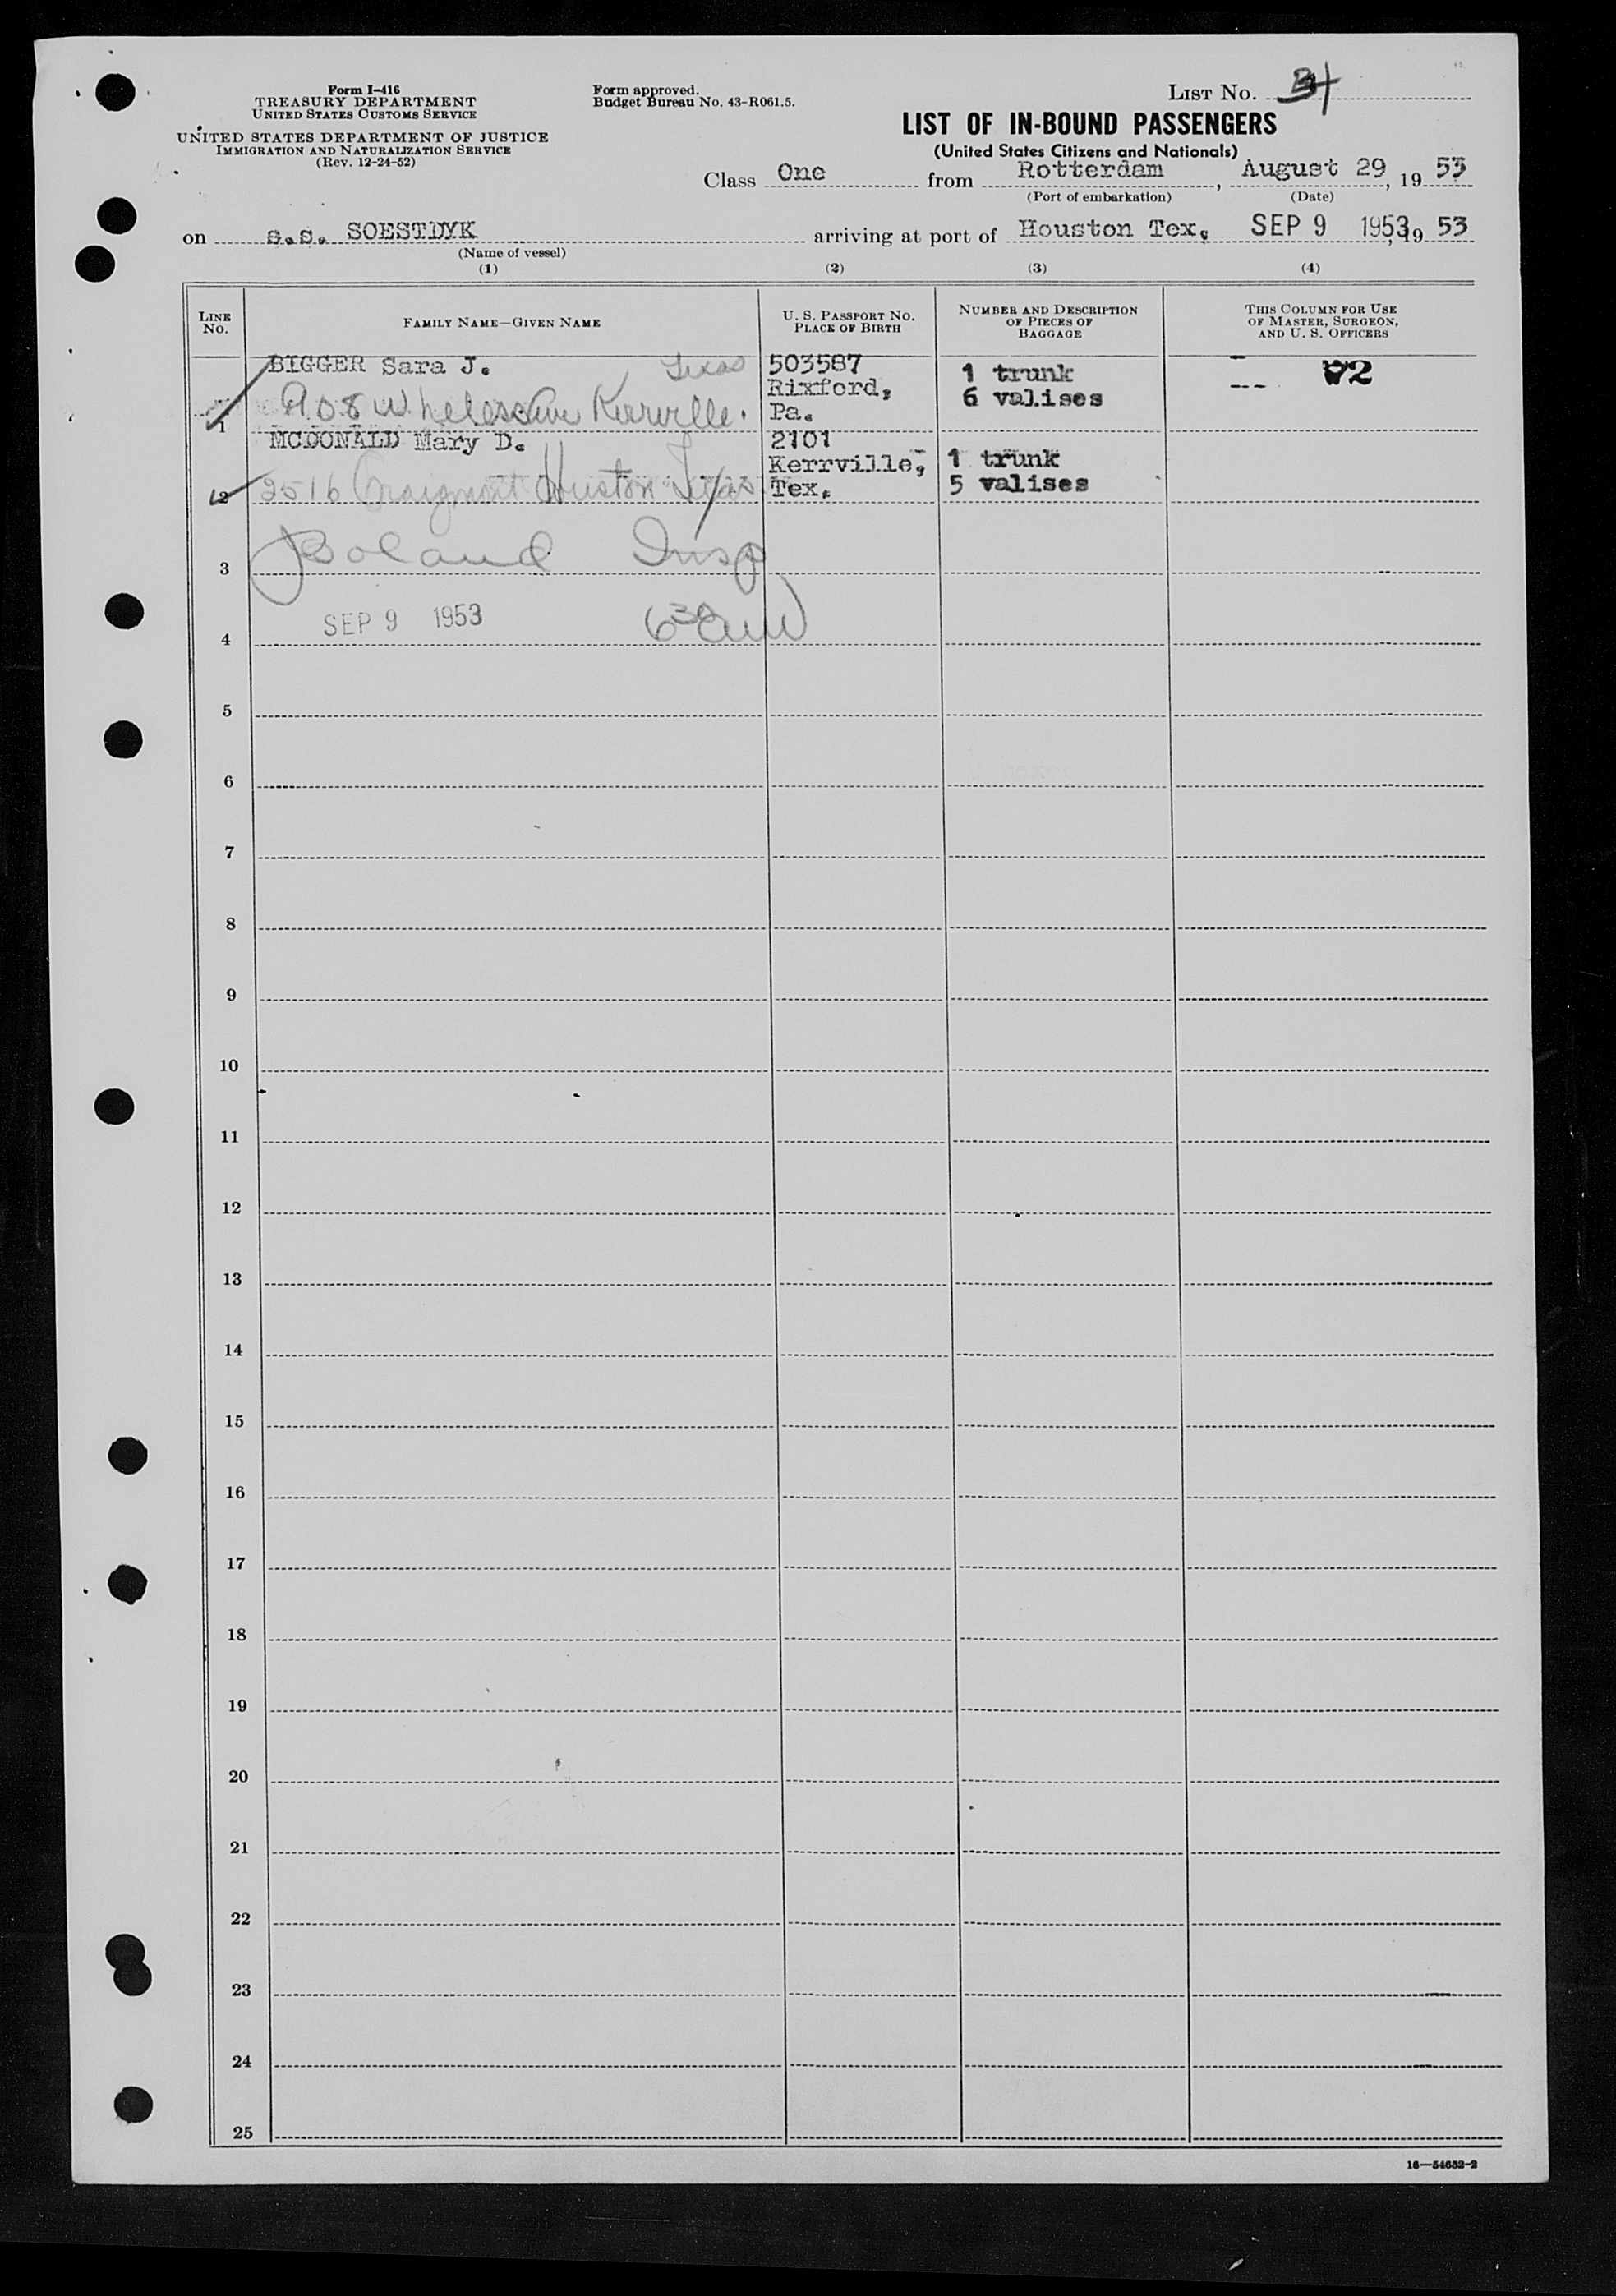 Form I-416
TREASURY DEPARTMENT
UNITED STATES CUSTOMS SERVICE
UNITED STATES DEPARTMENT OF JUSTICE
IMMIGRATION AND NATURALIZATION SERVICE
(Rev. 12-24-52)
Form approved.
Budget Bureau No. 43-R061.5.
LIST NO.
LIST OF IN-BOUND PASSENGERS
(United States Citizens and Nationals)
Class One from Rotterdam, August 29, 19 53
(Port of embarkation) (Date)
on s.s. SOESTDYK arriving at port of Houston Tex, SEP 9 1953, 19 53
(Name of vessel)
(1) (2) (3) (4)
LINE NO.
FAMILY NAME—GIVEN NAME
U. S. PASSPORT NO.
PLACE OF BIRTH
NUMBER AND DESCRIPTION
OF PIECES OF
BAGGAGE
THIS COLUMN FOR USE
OF MASTER, SURGEON,
AND U. S. OFFICERS
BIGGER Sara J. Texas 503587 1 trunk
Rixford, 6 valises
1 908 W Kerrville. Pa.
MCDONALD Mary D. 2101 1 trunk
Kerrville, 5 valises
2 2516 Houston Texas Tex.
3 Boland Insp
4 SEP 9 1953
5
6
7
8
9
10
11
12
13
14
15
16
17
18
19
20
21
22
23
24
25
16—54652-2